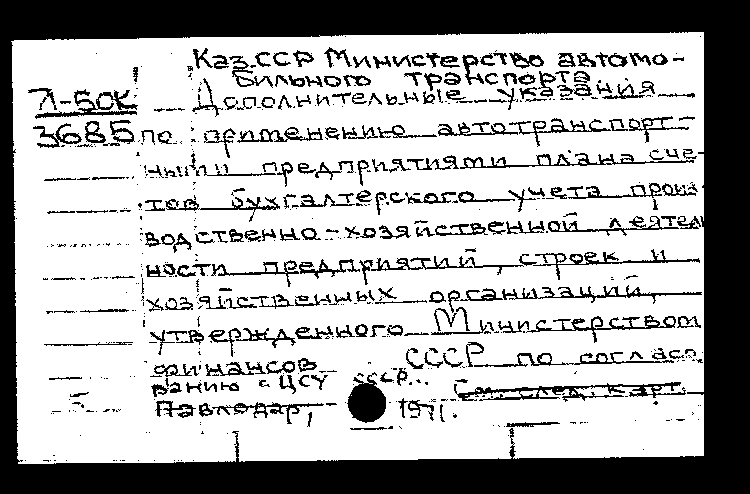 Каз.ССР Министерство автомо-
бильного транспорта
Л-50К Дополнительные указания
3685 по применению автотранспорт-
ными предприятиями плана сче-
тов бухгалтерского учета произ-
водственно-хозяйственной деятель
ности предприятий, строек и
хозяйственных организаций,
утвержденного Министерством
финансов СССР по согласо
ванию с ЦСУ СССР...
Павлодар, 1971. См. след. карт.